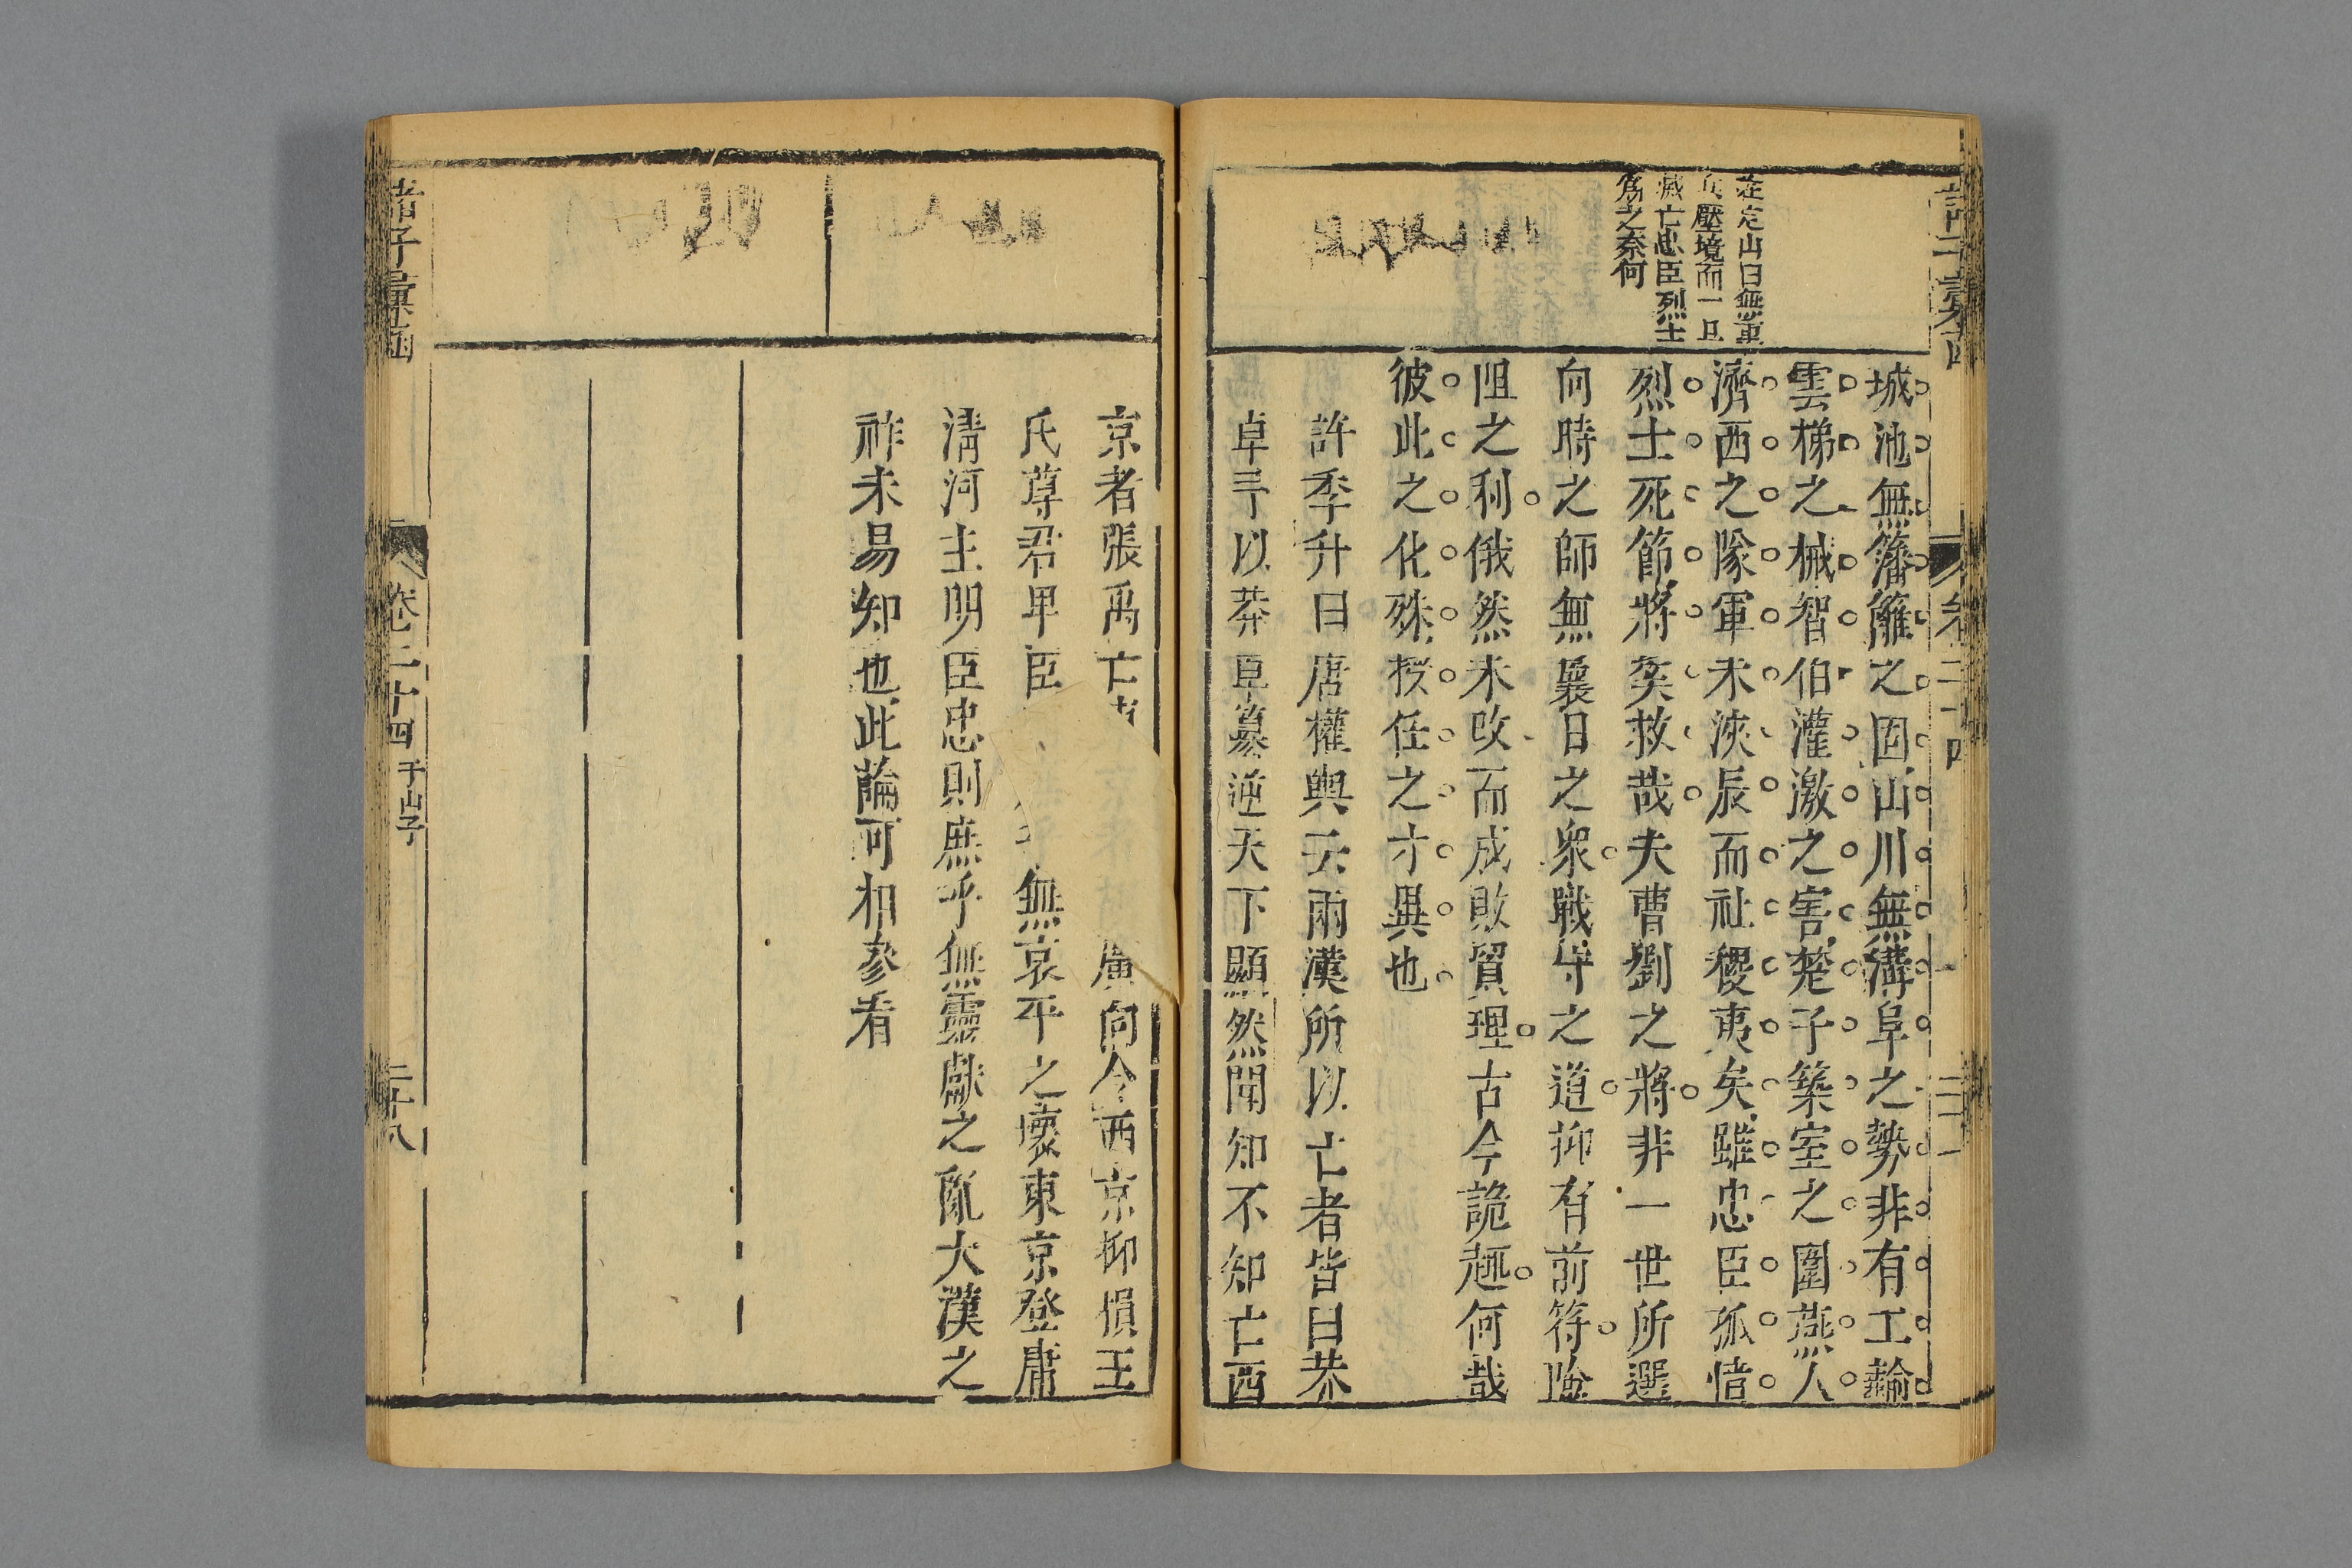 莊定山曰無重
兵壓境而一旦
滅亡忠臣烈士
為之奈何
城池無籓籬之固山川無溝阜之勢非有工輸
雲梯之械智伯灌激之害楚子築室之圍燕人
濟西之隊軍未浹辰而社稷夷矣雖忠臣孤憤
烈士死節將奚救哉夫曹劉之將非一世所選
向時之師無曩日之衆戰守之道抑有前符險
阻之利俄然未改而成敗貿理古今詭趣何哉
彼此之化殊授任之才異也
許季升曰唐權與云兩漢所以亡者皆曰莽
卓予以莽卓篡逆天下顯然聞知不知亡西
京者張禹亡
廣向令西京抑損王
氏尊君卑臣
無哀平之壞東京登庸
清河主明臣忠則庶乎無靈獻之亂大漢之
祚未易知也此論可相參看
諸子彙函
卷二十四
千山子
二十八